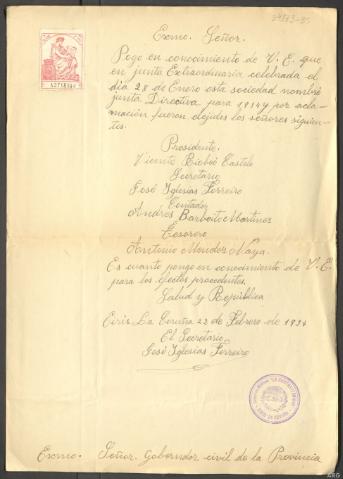 24373-35
Excmo. Señor.
Pogo en conocimiento de V.E. que
en junta Extraordinaria celebrada el
dia 28 de Enero esta sociedad nombró
junta Directiva para 1934 y por acla-
mación fueron elejidos los señores siguien-
tes.
Presidente.
Vicente Castelo
Secretario
José Iglesias Ferreiro
Contador
Andrés Barbeito Martinez
Tesorero
Antonio Mendez Naya.
Es cuanto pongo en conocimiento de V.E.
para los efectos procedentes.
Salud y República
Oiris La Coruña 22 de Febrero de 1934
El Secretario
José Iglesias Ferreiro
Excmo. Señor. Goberndor civil de la Provincia
ARG